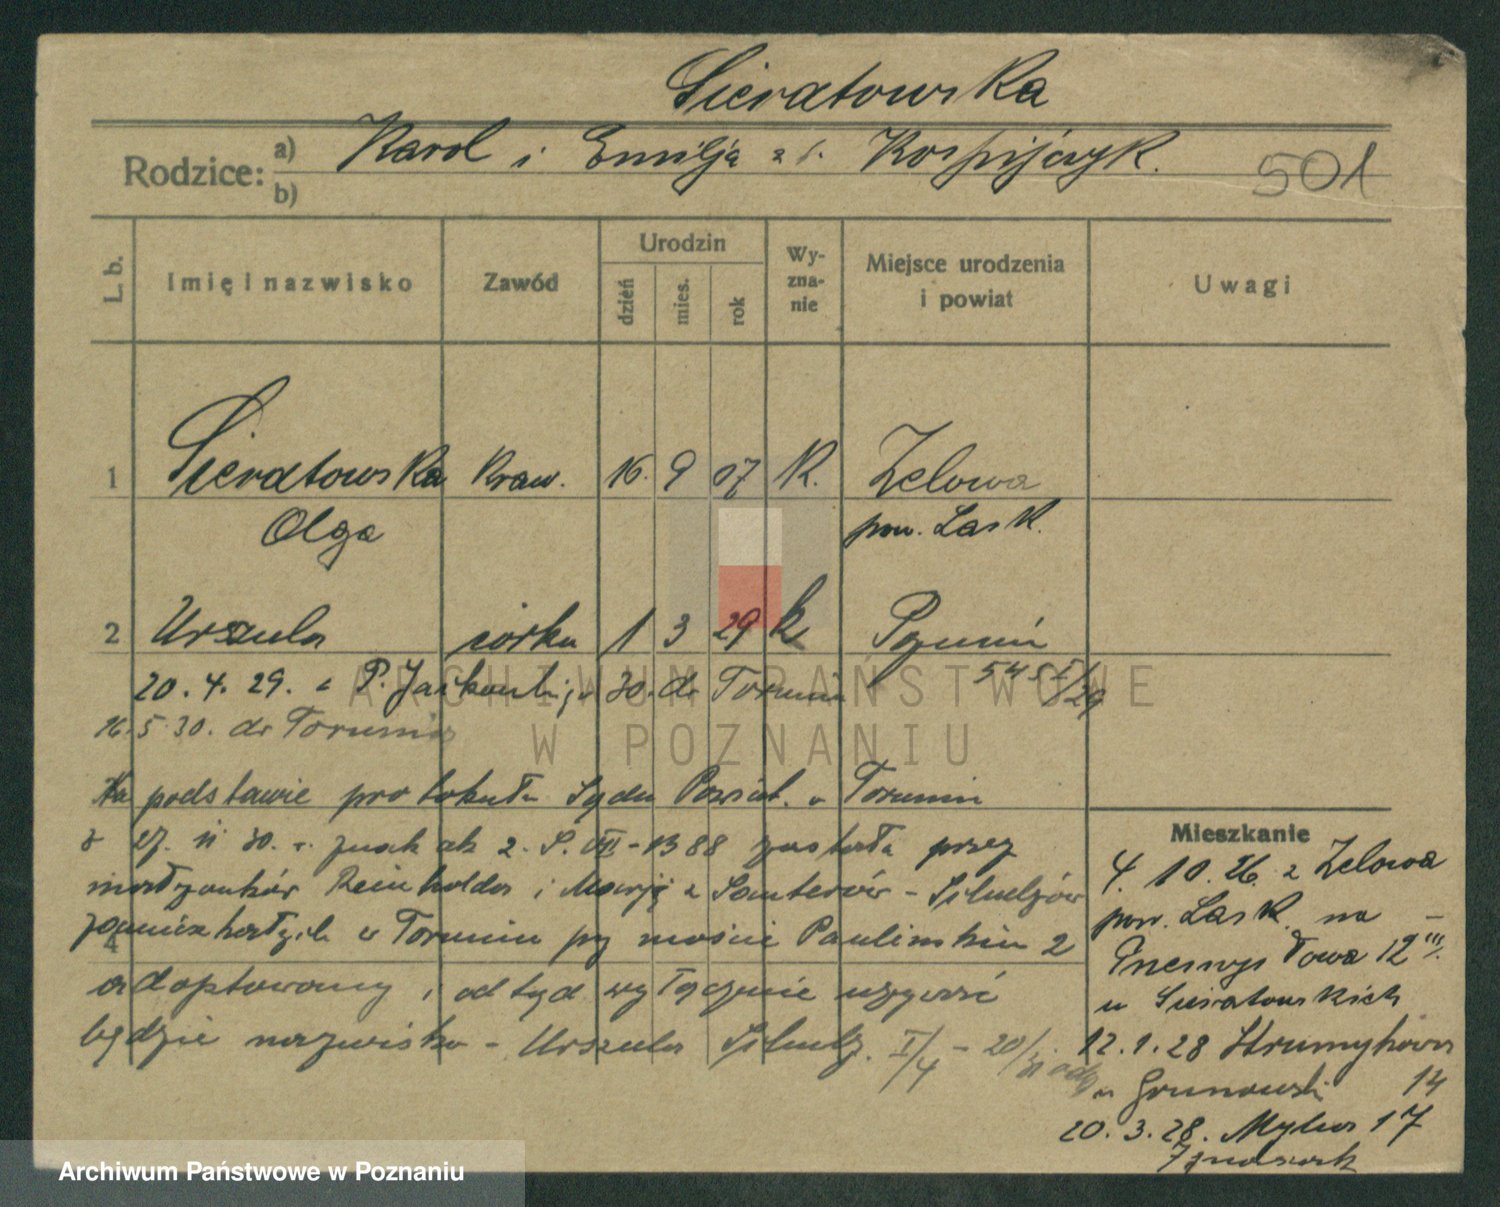 Sieratowska
Rodzice: a) Karol i Emilja z d. Kospijczyk.
b)
501
L. b.
Imię i nazwisko
Zawód
Urodzin
dzień
mies.
rok
Wy-
zna-
nie
Miejsce urodzenia
i powiat
Uwagi
1 Sieratowska Kraw. 16. 9 07 R. Zelowa
Olga pow. Lask.
2 Urszula córka 1 3 29 k Poznań
20. 4. 29. P. 30. do Torunia
545 I/29
16. 5. 30. do Torunia
Na podstawie protokułu Sądu Powiat. w Toruniu
z 27. 30. r. znak akt 2. S. VII - 1388 została przez
małżonków Reinholda i Marję z Sauterów - Schulzów
zamieszkałych w Toruniu przy moście Paulińskim 2
4
adoptowany i odtąd wyłącznie używać
będzie nazwisko - Urszula Schulz. I/4 - 20/
Mieszkanie
4. 10. 26. z Zelowa
pow. Lask. na -
Przemysłowa 12 III.
u Sieratowskich
12. 1. 28 Strumykowa
u Grunowski 14
20. 3. 28. 17
ARCHIWUM PAŃSTWOWE
W POZNANIU
Archiwum Państwowe w Poznaniu